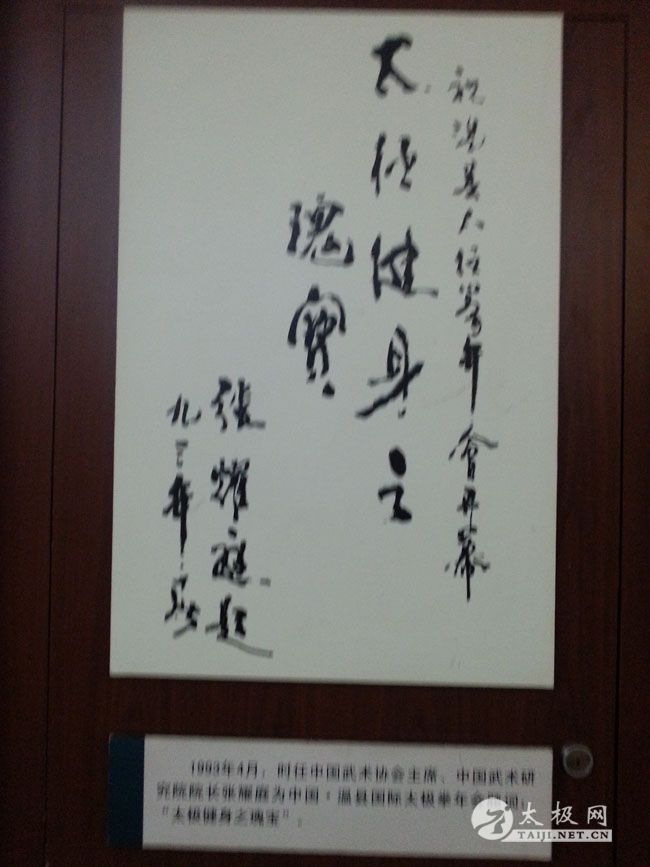 祝温县太极拳年會开幕
太极健身之
瑰寶
張耀庭题
九三年
1993年4月,时任中国武术协会主席、中国武术研
究院院长张耀庭为中国·温县国际太极拳年会题词:
“太极健身之瑰宝”。
太极网
TAIJI.NET.CN